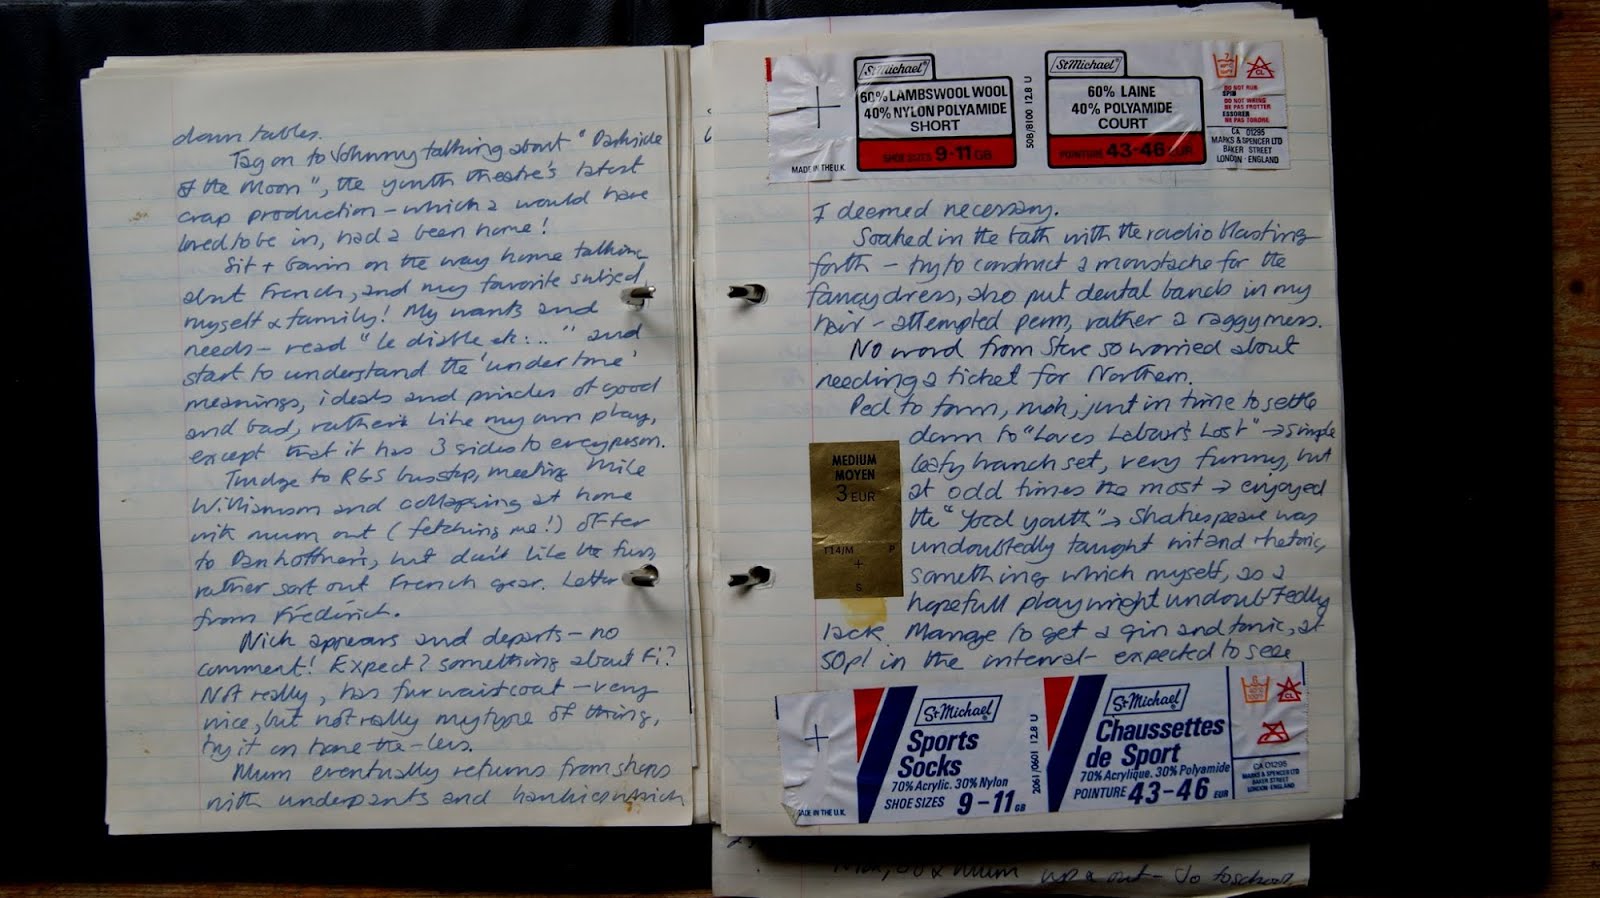 down tables.
Tag on to Johnny talking about "Darkside
of the Moon", the youth theatre's latest
crap production - which I would have
loved to be in, had I been home!
Sit + Gavin on the way home talking
about French, and my favorite subject
myself & family! My wants and
needs - read "le diable et..." and
start to understand the 'undertone'
meanings, ideals and of good
and bad, rather like my own play,
except that it has 3 sides to every person.
Trudge to RGS bus stop, meeting Mike
Williamson and collapsing at home
with mum out (fetching me!) offer
to Dan hoffner's, but don't like the fuss,
rather sort out French gear. Letter
from Fréderich.
Nick appears and departs - no
comment! Expect? something about Fi?
Not really, has fur waistcoat - very
nice, but not really my type of thing,
try it on none-the-less.
Mum eventually returns from shops
with underpants and hankies which
St Michael®
60% LAMBSWOOL WOOL
40% NYLON POLYAMIDE
SHORT
SHOE SIZES 9-11 GB
MADE IN THE U.K.
508/8100 12.8 U
St Michael®
60% LAINE
40% POLYAMIDE
COURT
POINTURE 43-46 EUR
DO NOT RUB
SPIN
DO NOT WRING
NE PAS FROTTER
ESSORER
NE PAS TORDRE
CA 01295
MARKS & SPENCER LTD
BAKER STREET
LONDON · ENGLAND
I deemed necessary.
Soaked in the bath with the radio blasting
forth - try to construct a moustache for the
fancy dress, also put dental bands in my
hair - attempted perm, rather a raggy mess.
No word from Steve so worried about
needing a ticket for Northern.
Ped to town, nosh, just in time to settle
down to "Loves Labour's Lost" → simple
leafy branch set, very funny, but
at odd times the most → enjoyed
the youth" → Shakespeare was
undoubtedly taught wit and rhetoric,
something which myself, as a
hopefull playwright undoubtedly
lack. Manage to get a gin and tonic, at
50p! in the interval - expected to see
MEDIUM
MOYEN
3 EUR
T14/M P
+
S
St Michael®
Sports
Socks
70% Acrylic. 30% Nylon
SHOE SIZES 9-11 GB
MADE IN THE U.K.
2061/0601 12.8 U
St Michael®
Chaussettes
de Sport
70% Acrylique. 30% Polyamide
POINTURE 43-46 EUR
CA 01295
MARKS & SPENCER LTD
BAKER STREET
LONDON · ENGLAND
& Mum up & out - Jo to school,